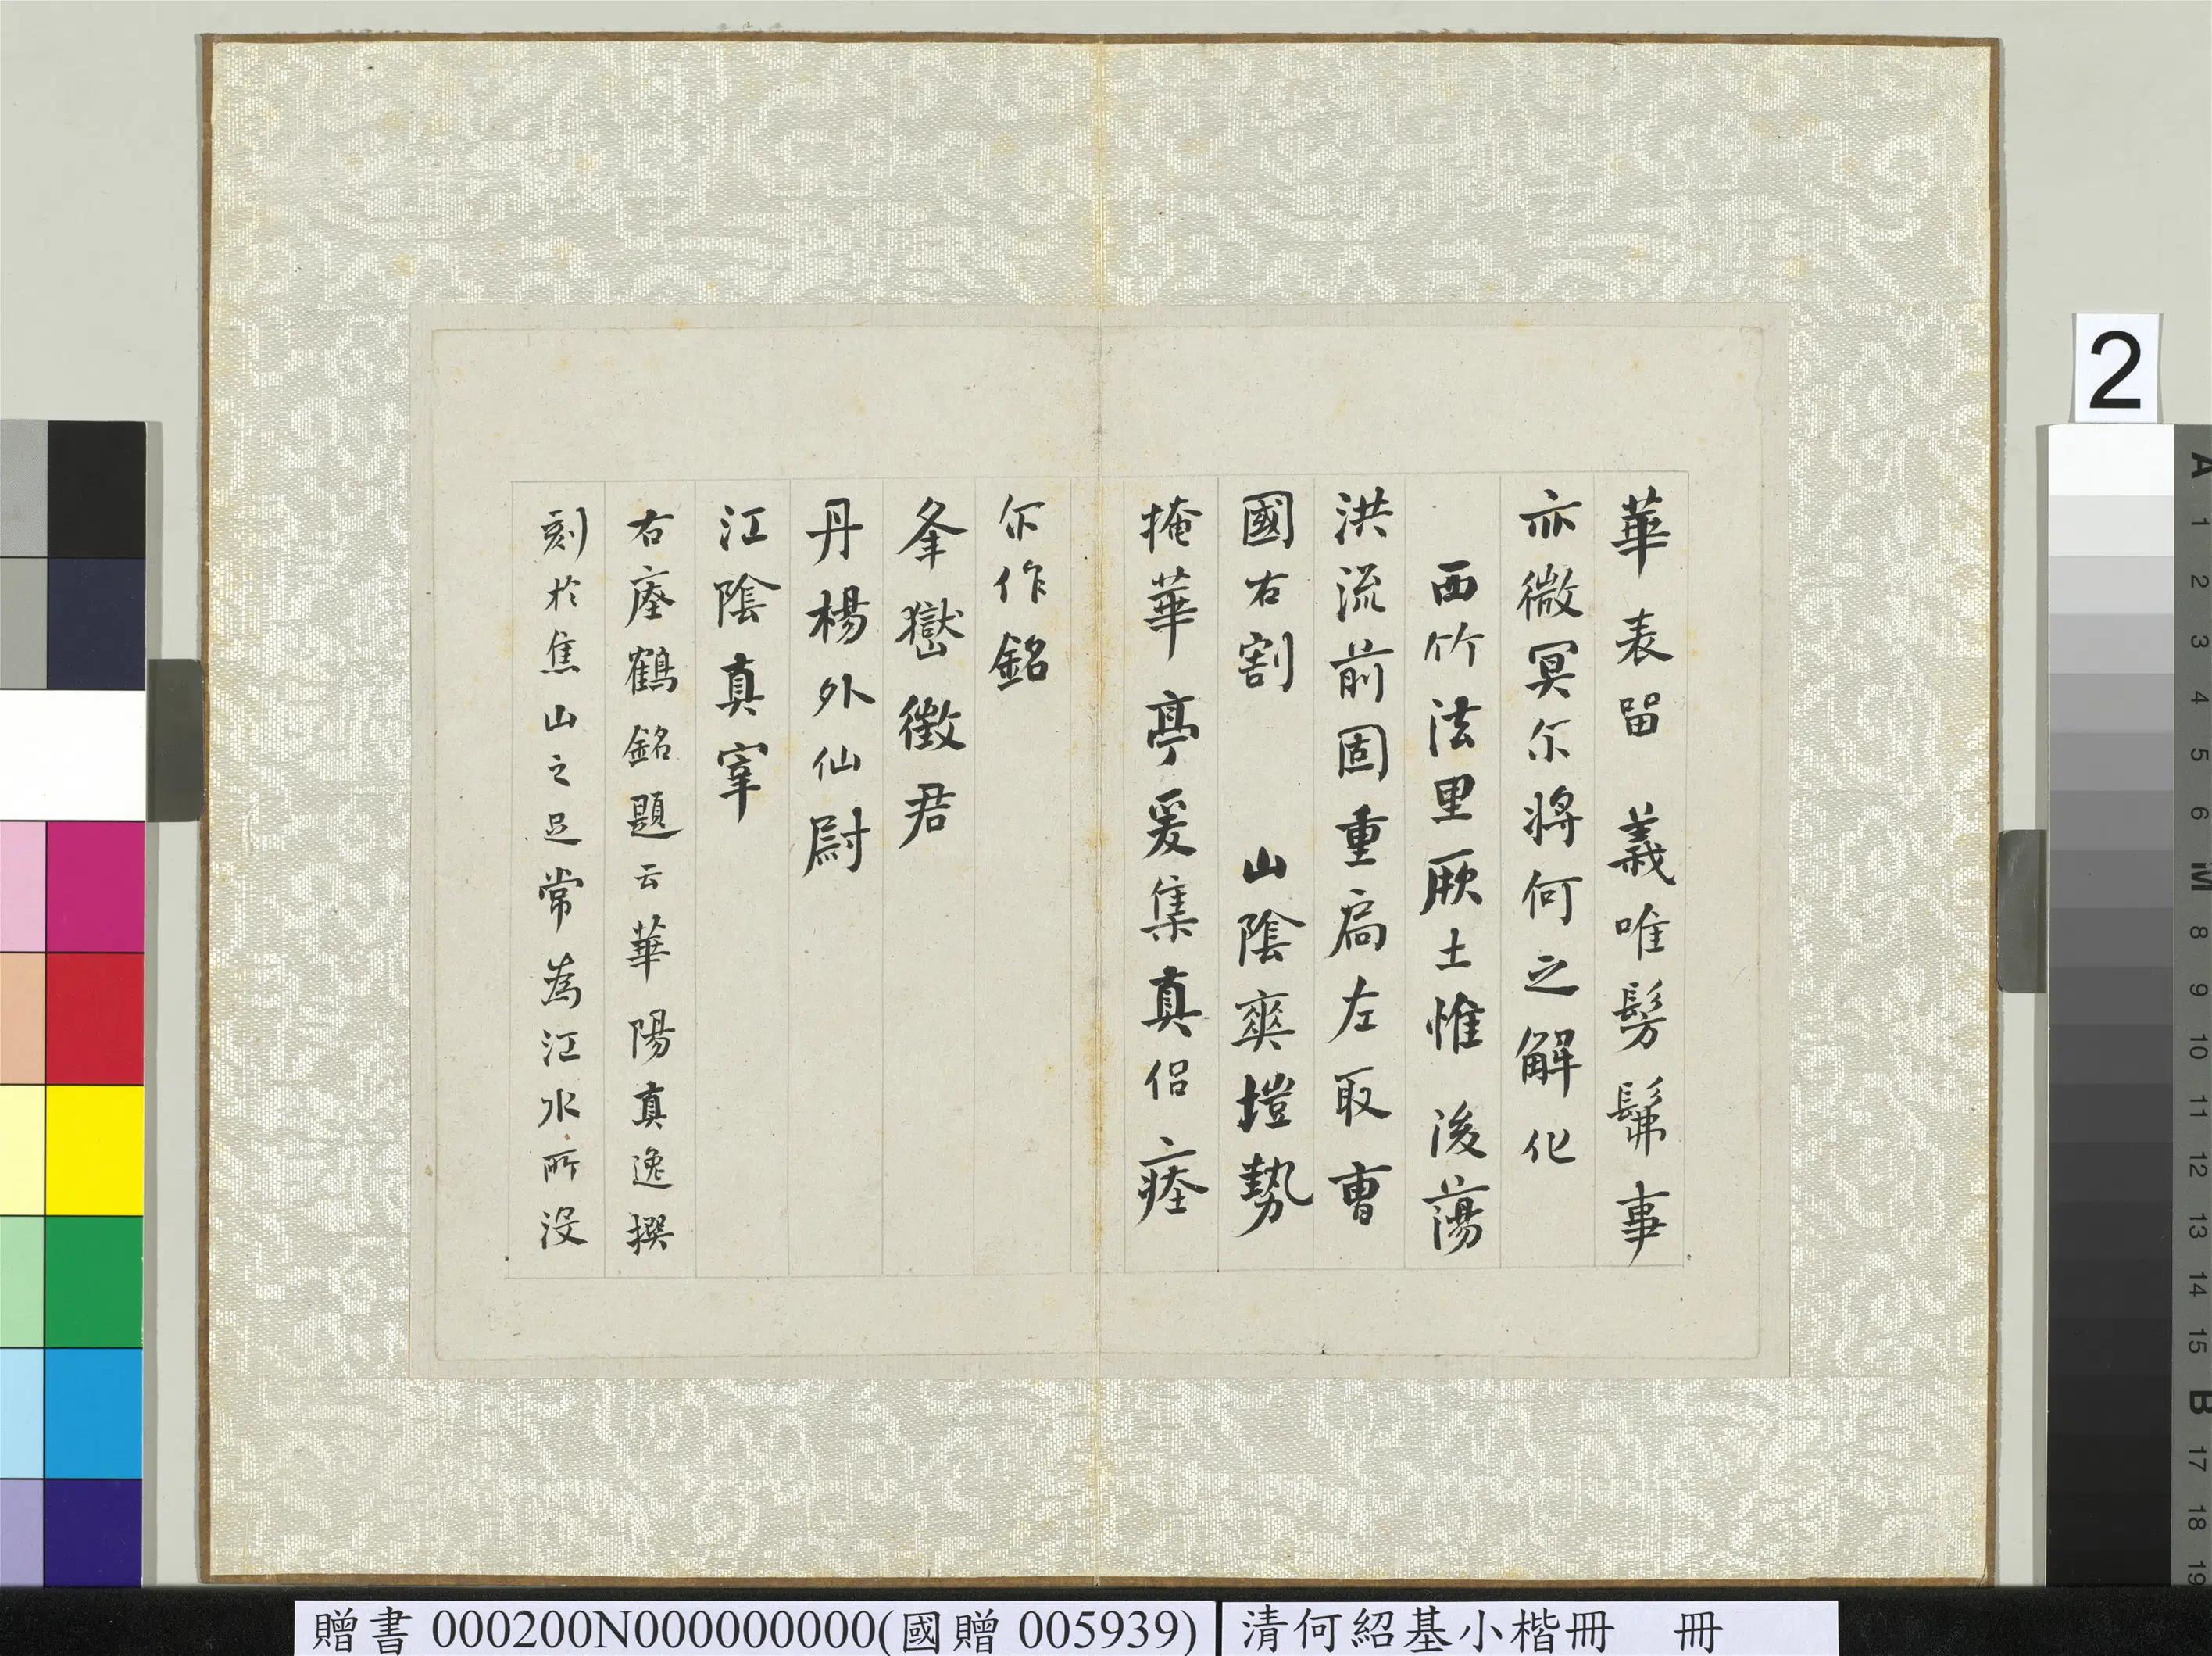 華表留義唯髣髴事
亦微冥尓將何之解化
西竹法里厥土惟後蕩
洪流前固重扃左取曹
國右割山陰爽塏勢
掩華亭爰集真侣瘞
尓作銘
夅嶽徵君
丹楊外仙尉
江陰真宰
右瘞鶴銘題云華陽真逸撰
刻於焦山之足常為江水所没
2
A
1
2
3
4
5
6
M
8
9
10
11
12
13
14
15
B
17
18
19
贈書 000200N000000000(國贈 005939)
清何紹基小楷冊 冊